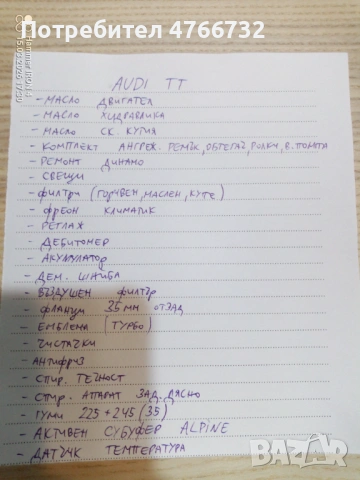 Потребител 4766732
AUDI TT
- МАСЛО ДВИГАТЕЛ
- МАСЛО ХИДРАВЛИКА
- МАСЛО СК. КУТИЯ
- КОМПЛЕКТ АНГРЕН. РЕМЪК, ОБТЕГАЧ, РОЛКИ, В. ПОМПА
- РЕМОНТ ДИНАМО
- СВЕЩИ
- ФИЛТРИ (ГОРИВЕН, МАСЛЕН, КУПЕ)
- ФРЕОН КЛИМАТИК
- РЕГЛАЖ
- ДЕБИТОМЕР
- АКУМУЛАТОР
- ДЕМ. ШАЙБА
- ВЪЗДУШЕН ФИЛТЪР
- ФЛАНЦИ 35мм ОТЗАД
- ЕМБЛЕМА (ТУРБО)
- ЧИСТАЧКИ
- АНТИФРИЗ
- СПИР. ТЕЧНОСТ
- СПИР. АПАРАТ ЗАД. ДЯСНО
- ГУМИ 225 + 245 (35)
- АКТИВЕН СУБУФЕР ALPINE
- ДАТЧИК ТЕМПЕРАТУРА
BAZAR